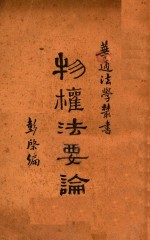 華通法學叢書
物權法要論
彭榘編